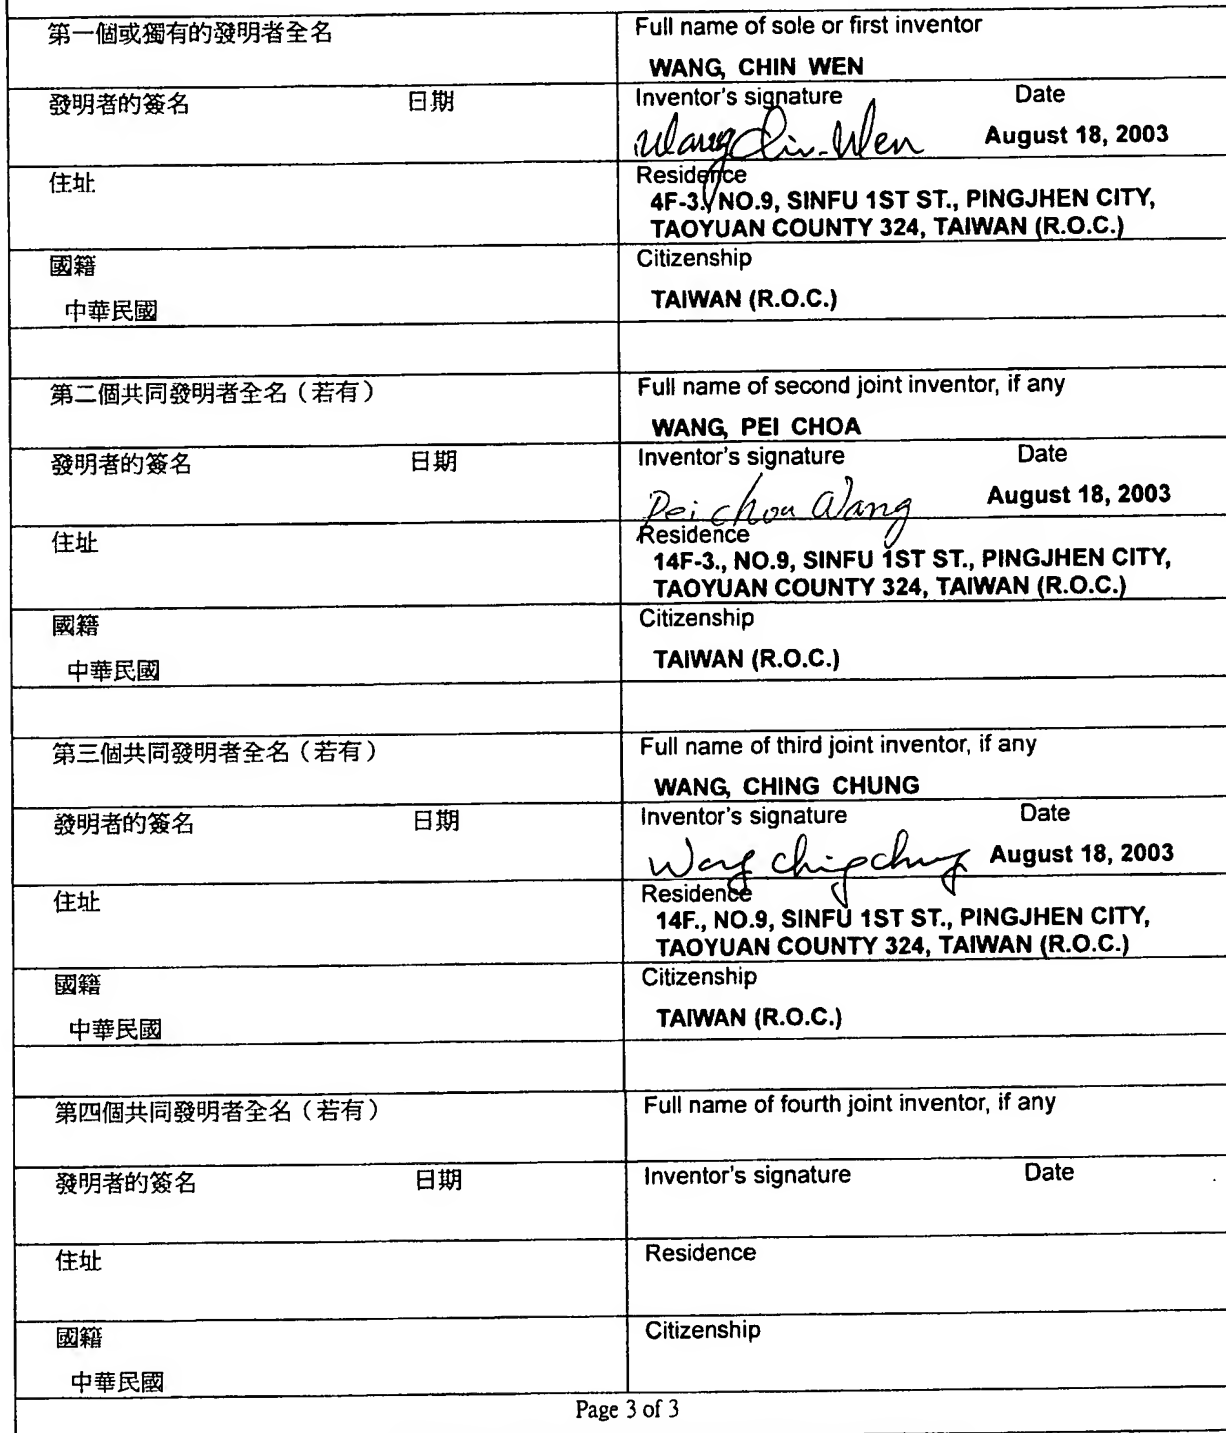 第一個或獨有的發明者全名
Full name of sole or first inventor
WANG, CHIN WEN
發明者的簽名 日期
Inventor's signature Date
Wang Chin-Wen August 18, 2003
住址
Residence
4F-3., NO.9, SINFU 1ST ST., PINGJHEN CITY,
TAOYUAN COUNTY 324, TAIWAN (R.O.C.)
國籍
中華民國
Citizenship
TAIWAN (R.O.C.)
第二個共同發明者全名（若有）
Full name of second joint inventor, if any
WANG, PEI CHOA
發明者的簽名 日期
Inventor's signature Date
Pei choa Wang August 18, 2003
住址
Residence
14F-3., NO.9, SINFU 1ST ST., PINGJHEN CITY,
TAOYUAN COUNTY 324, TAIWAN (R.O.C.)
國籍
中華民國
Citizenship
TAIWAN (R.O.C.)
第三個共同發明者全名（若有）
Full name of third joint inventor, if any
WANG, CHING CHUNG
發明者的簽名 日期
Inventor's signature Date
Wang chingchung August 18, 2003
住址
Residence
14F., NO.9, SINFU 1ST ST., PINGJHEN CITY,
TAOYUAN COUNTY 324, TAIWAN (R.O.C.)
國籍
中華民國
Citizenship
TAIWAN (R.O.C.)
第四個共同發明者全名（若有）
Full name of fourth joint inventor, if any
發明者的簽名 日期
Inventor's signature Date
住址
Residence
國籍
中華民國
Citizenship
Page 3 of 3